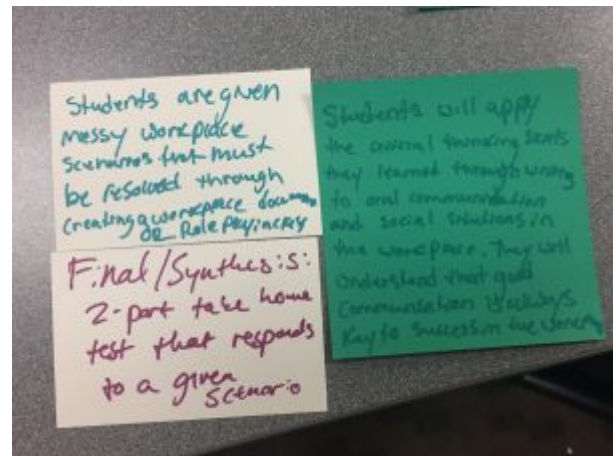 Students are given
messy workplace
scenarios that must
be resolved through
creating a workplace document
OR Role playing
Final/Synthesis:
2-part take home
test that responds
to a given
scenario
Students will apply
the critical thinking skills
they learned through writing
to oral communication
and social situations in
the workplace. They will
understand that good
communication is always
key to success in the